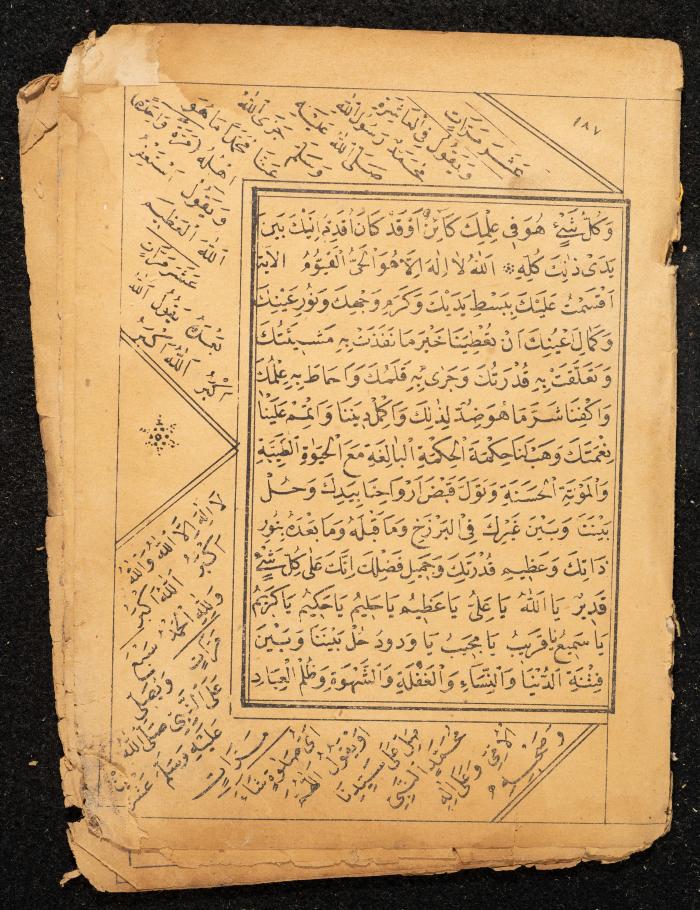 ١٨٧
وَكُلُّ شَيْءٍ هُوَ فِي عِلْمِكَ كَائِنٌ أَوْ قَدْ كَانَ أُقَدِّمُ إِلَيْكَ بَيْنَ
يَدَىْ ذٰلِكَ كُلِّهِ ۞ اَللهُ لَا اِلٰهَ اِلَّا هُوَ الْحَىُّ الْقَيُّومُ الاية
اَقْسَمْتُ عَلَيْكَ بِبَسْطِ يَدَيْكَ وَكَرَمِ وَجْهِكَ وَنُورِ عَيْنِكَ
وَكَمَالِ اَعْيُنِكَ اَنْ تُعْطِيَنَا خَيْرَ مَا نَفَذَتْ بِهِ مَشِيئَتُكَ
وَتَعَلَّقَتْ بِهِ قُدْرَتُكَ وَجَرٰى بِهِ قَلَمُكَ وَاَحَاطَ بِهِ عِلْمُكَ
وَاكْفِنَا شَرَّ مَا هُوَ ضِدٌّ لِذٰلِكَ وَاَكْمِلْ دِينَنَا وَاَتْمِمْ عَلَيْنَا
نِعْمَتَكَ وَهَبْ لَنَا حِكْمَةَ الْحِكْمَةِ الْبَالِغَةِ مَعَ الْحَيٰوةِ الطَّيِّبَةِ
وَالْمَوْتَةِ الْحَسَنَةِ وَتَوَلَّ قَبْضَ اَرْوَاحِنَا بِيَدِكَ وَحُلْ
بَيْنَنَا وَبَيْنَ غَيْرِكَ فِى الْبَرْزَخِ وَمَا قَبْلَهُ وَمَا بَعْدَهُ بِنُورِ
ذَاتِكَ وَعَظِيمِ قُدْرَتِكَ وَجَمِيلِ فَضْلِكَ اِنَّكَ عَلٰى كُلِّ شَيْءٍ
قَدِيرٌ يَا اَللهُ يَا عَلِىُّ يَا عَظِيمُ يَا حَلِيمُ يَا حَكِيمُ يَا كَرِيمُ
يَا سَمِيعُ يَا قَرِيبُ يَا مُجِيبُ يَا وَدُودُ حُلْ بَيْنَنَا وَبَيْنَ
فِتْنَةِ الدُّنْيَا وَالنِّسَاءِ وَالْغَفْلَةِ وَالشَّهْوَةِ وَظُلْمِ الْعِبَادِ
عَشْرَ مَرَّاتٍ
وَيَقُولُ فِى الْعَاشِرَةِ
مُحَمَّدٌ رَسُولُ اللهِ
صَلَّى اللهُ عَلَيْهِ
وَسَلَّمَ جَزَى اللهُ
عَنَّا مُحَمَّدًا مَا هُوَ
اَهْلُهُ (مَرَّةً وَاحِدَةً)
وَيَقُولُ اَسْتَغْفِرُ
اللهَ الْعَظِيمَ
عَشْرَ مَرَّاتٍ
بَعْدَهُ يَقُولُ اَللهُ
اَكْبَرُ اَللهُ اَكْبَرُ
لَا اِلٰهَ اِلَّا اللهُ وَاللهُ
اَكْبَرُ اَللهُ اَكْبَرُ
وَلِلّٰهِ الْحَمْدُ
سَبْعَ مَرَّاتٍ
وَيُصَلِّى
عَلَى النَّبِىِّ صَلَّى اللهُ
عَلَيْهِ وَسَلَّمَ عَشْرَ
مَرَّاتٍ
اَىَّ صَلٰوةٍ شَاءَ
اَوْ يَقُولُ اَللّٰهُمَّ
صَلِّ عَلٰى سَيِّدِنَا
مُحَمَّدٍ النَّبِىِّ
الْاُمِّىِّ وَعَلٰى اٰلِهِ
وَصَحْبِهِ